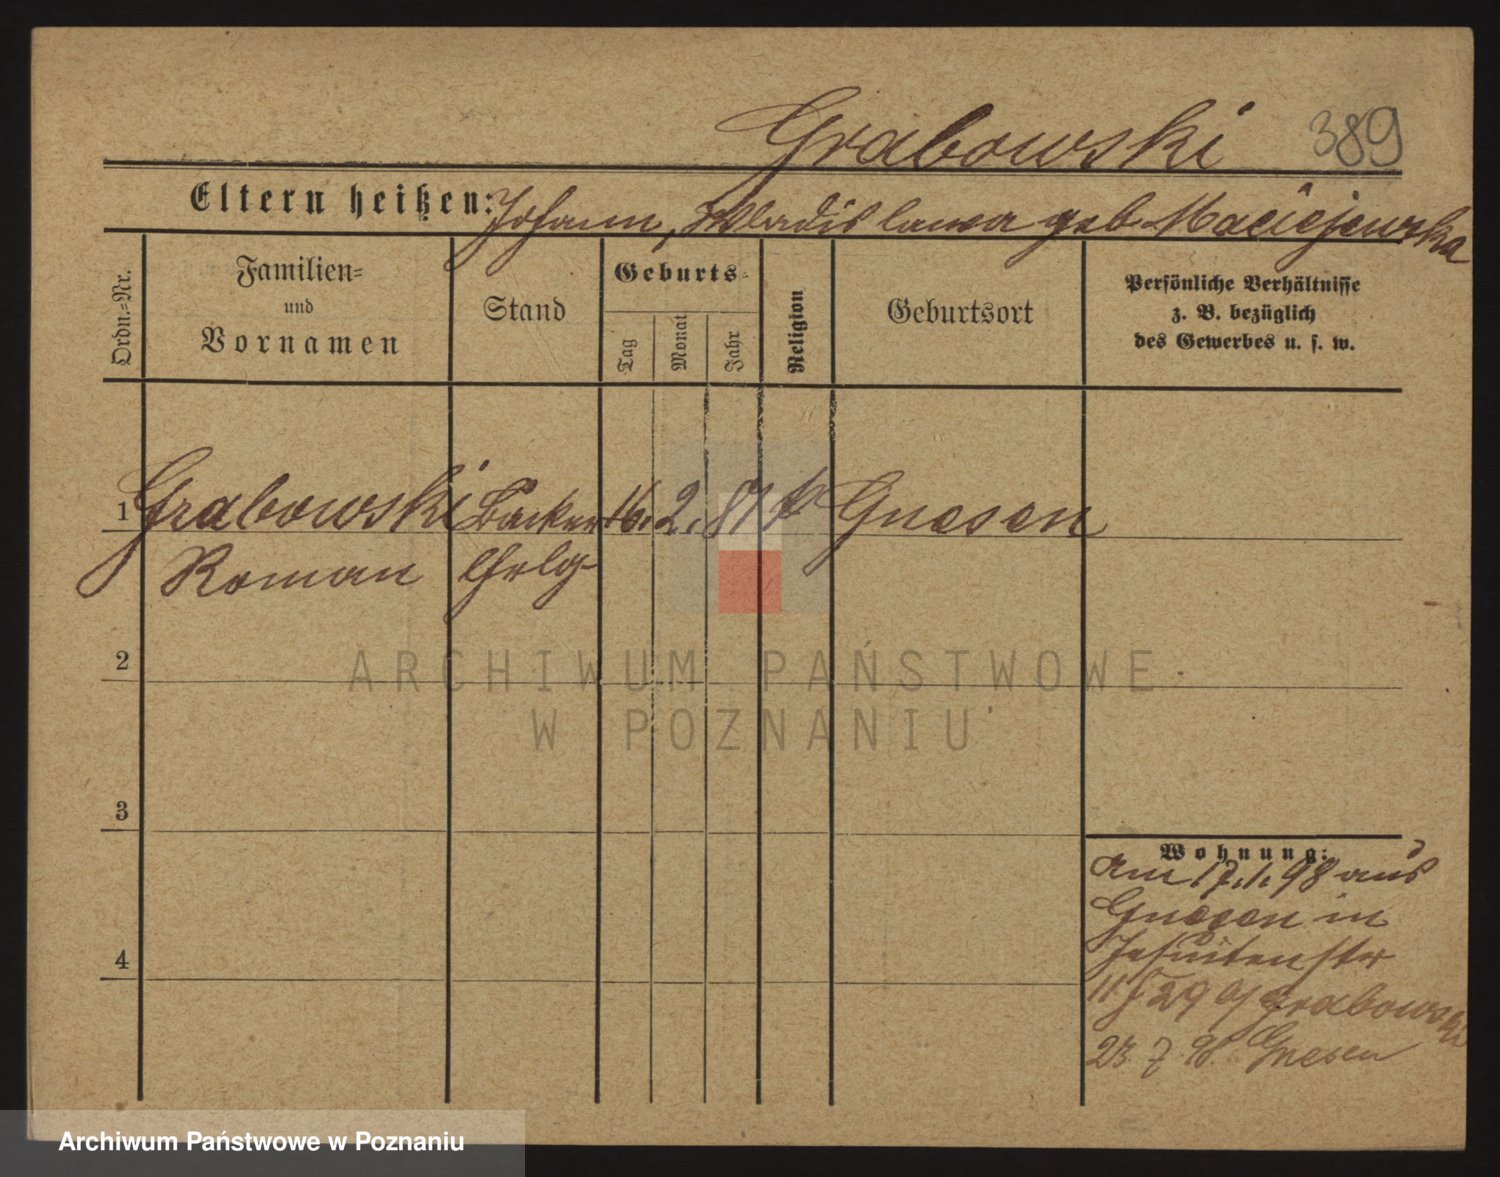 Grabowski 389
Eltern heißen: Johann, Wladislawa geb Maciejewska
Ordn.-Nr.
Familien-
und
Vornamen
Stand
Geburts-
Tag
Monat
Jahr
Religion
Geburtsort
Persönliche Verhältnisse
z. B. bezüglich
des Gewerbes u. s. w.
1 Grabowski Bäcker 16. 2. 81 k Gnesen
Roman Lehrlg
2
ARCHIWUM PAŃSTWOWE
W POZNANIU
3
Wohnung:
am 17.1.98 aus
Gnesen in
Jesuitenstr
11 29 Grabowski
4
23 7 98. Gnesen
Archiwum Państwowe w Poznaniu